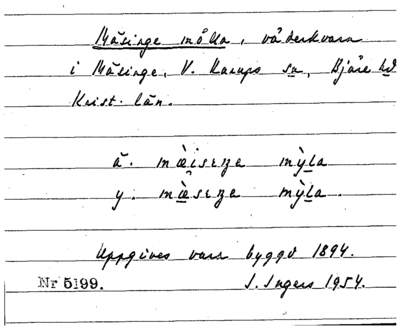 Mäsinge mölla, väderkvarn
i Mäsinge, V. Karups sn, Bjäre hd
Krist. län.
ä. mæ̀isɩŋa mỳla
y. mæ̀sɩŋa mỳla.
Uppgives vara byggd 1894.
Nr 5199. I. Ingers 1954.